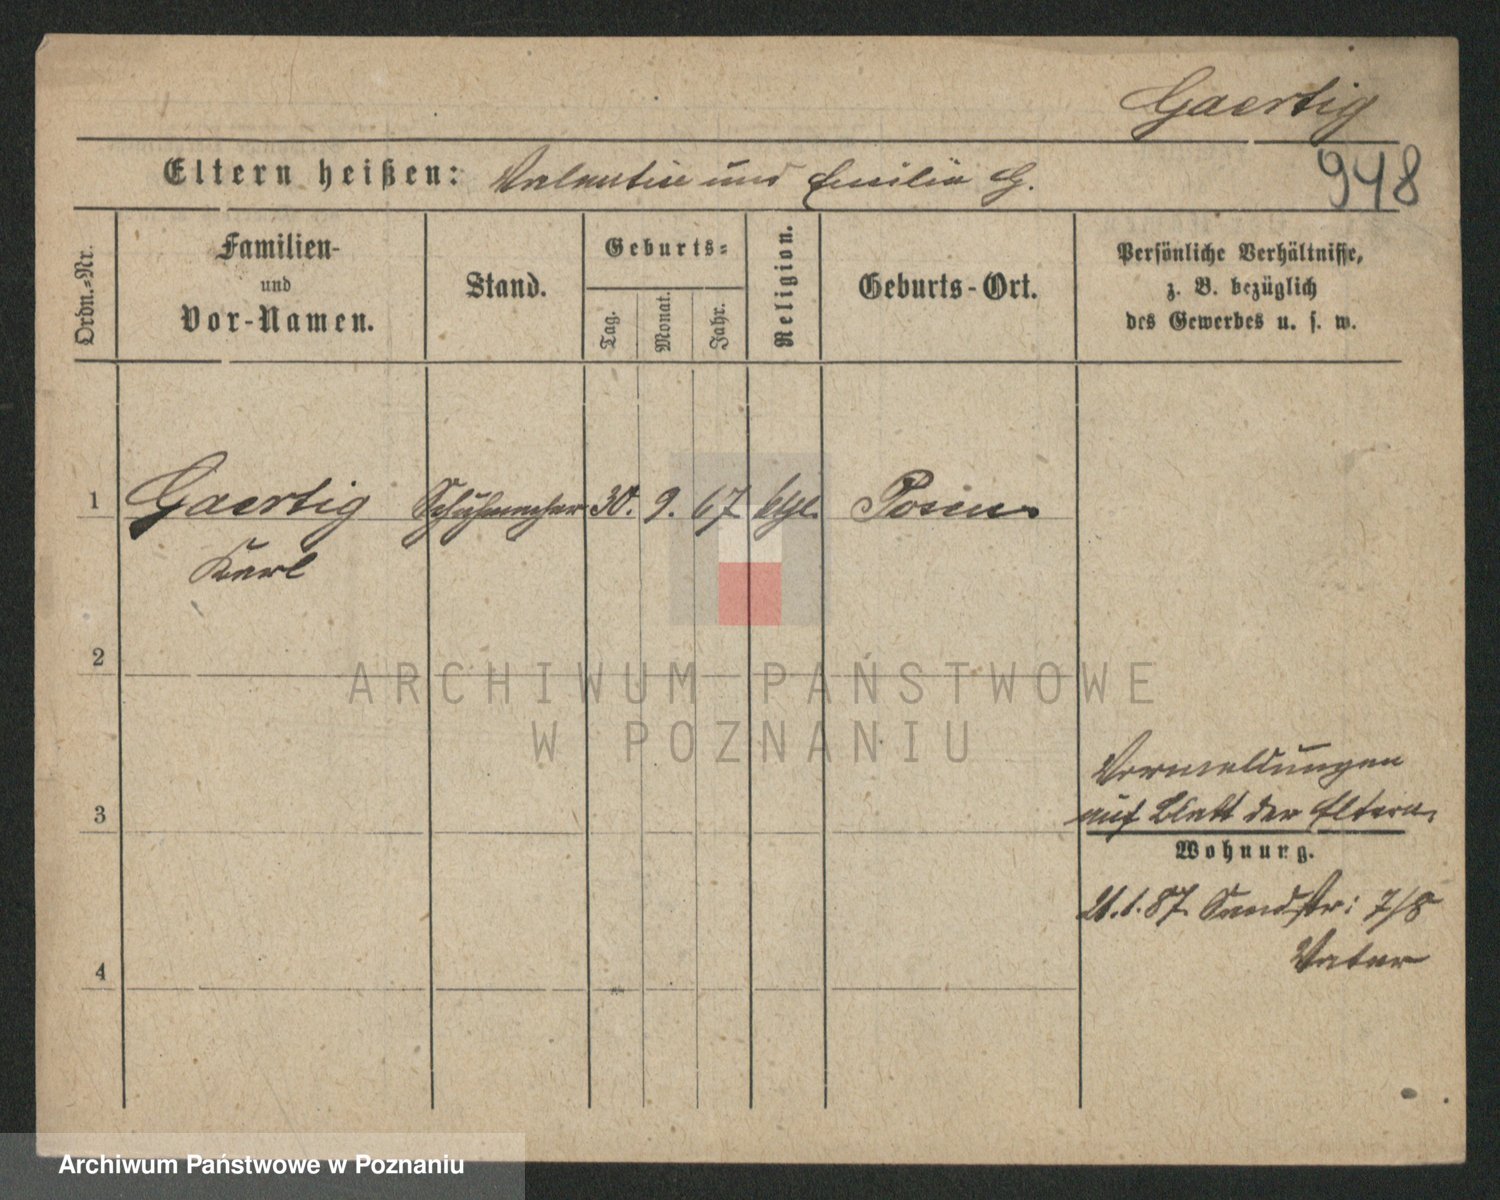 Gaertig
948
Eltern heißen: Valentin und Emilie G.
Ordn.-Nr.
Familien-
und
Vor-Namen.
Stand.
Geburts-
Tag.
Monat.
Jahr.
Religion.
Geburts-Ort.
Persönliche Verhältnisse,
z. B. bezüglich
des Gewerbes u. s. w.
1 Gaertig Schuhmacher 30. 9. 67 Posen
Karl
2
ARCHIWUM PAŃSTWOWE
W POZNANIU
Vermeldungen
3 auf Blatt der Eltern.
Wohnung.
21.1.87. Sandstr: 7/8
Vater
4
Archiwum Państwowe w Poznaniu